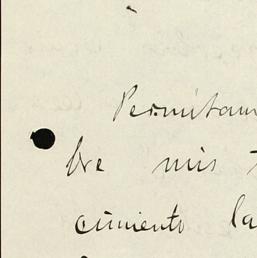 Permitam
bre mis
cimiento la